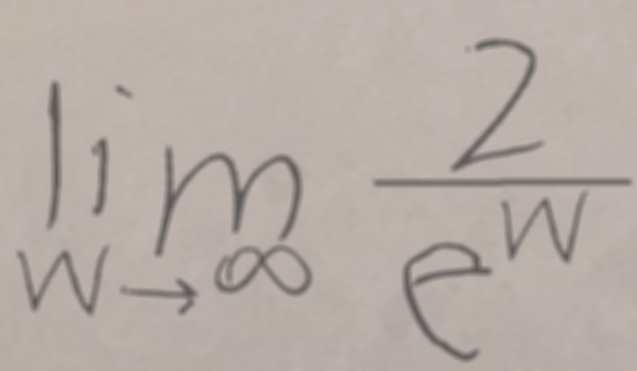 \lim_{W \to \infty} \frac{2}{e^{W}}